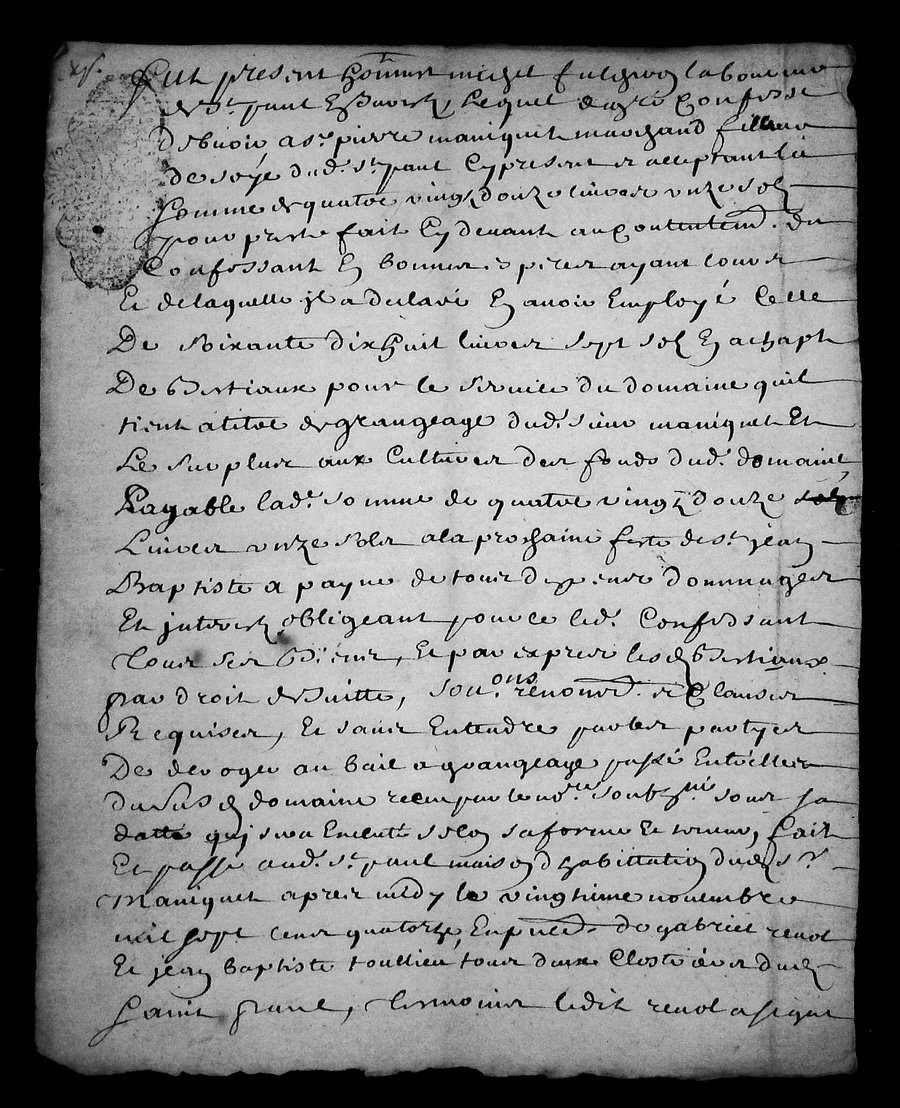 Fut present honneste michel fulchiron laboureur
de St paul En Jarest, Lequel de gré Confesse
debvoir a sr. pierre maniquet marchand fileur
de soÿe dud. St. paul Cy present et acceptant la
somme de quatre vingt douze livres unze sols
pour preste fait Cy devant au Contentemt. du
Confessant En bonnes especes ayant cours
Et de laquelle jl a declaré En avoir Employé Celle
De soixante dix huit livres sept sols En achapt
De Bestiaux pour le service du domaine quil
tient a titre de grangeage dud. sieur maniquet Et
Le surplus aux Cultures des fonds dud. domaine
Payable lad. somme de quatre vingt douze sols
Livres unze sols a la prochaine feste de st. jean
Baptiste a payne de tous despens dommages
Et jnterest obligeant pour ce led. Confessant
tous ses Biens, Et par expres lesd Bestiaux
par droit de suitte, soubons renoncd. et Clauses
Requises, Et sans Entendre par les partyes
De deroger au bail a grangeage passé Entr'elles
du susd domaine receu par le nore. soubzne sous sa
datte quj sera Executé selon sa forme Et teneur, fait
Et passé aud. St. paul maison d'habittation dud sr.
Maniquet apres midy le vingtieme novembre
mil sept cens quatorze, En pnce de gabriel revol
Et jean baptiste toullieu tous deux Closteriers dud
Saint paul, tesmoins ledit revol a signé